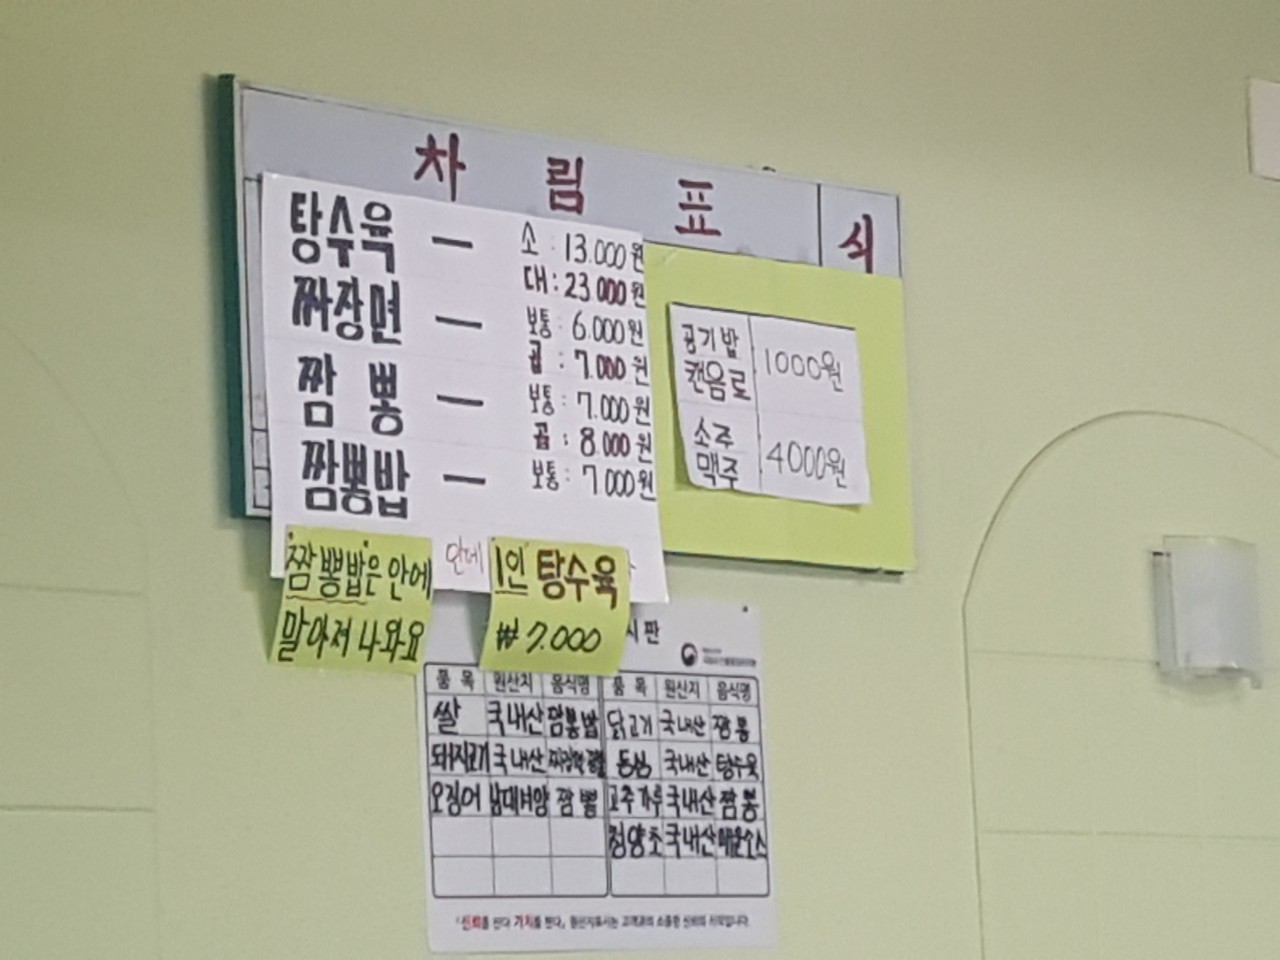 차림표
식
탕수육 — 소 : 13.000원
대 : 23.000원
짜장면 — 보통 : 6.000원
곱 : 7.000원
짬뽕 — 보통 : 7.000원
곱 : 8.000원
짬뽕밥 — 보통 : 7.000원
공기밥
캔음료 1000원
소주
맥주 4000원
"짬뽕밥"은 안에
말아져 나와요
안에
1인 탕수육
₩ 7.000
시판
품목 원산지 음식명 품목 원산지 음식명
쌀 국내산 짬뽕밥 닭고기 국내산 짬뽕
돼지고기 국내산 국내산 탕수육
오징어 짬뽕 고추가루 국내산 짬뽕
청양초 국내산 매운소스
『신뢰를 판다 가치를 판다』 원산지표시는 고객과의 소중한 신뢰의 시작입니다.